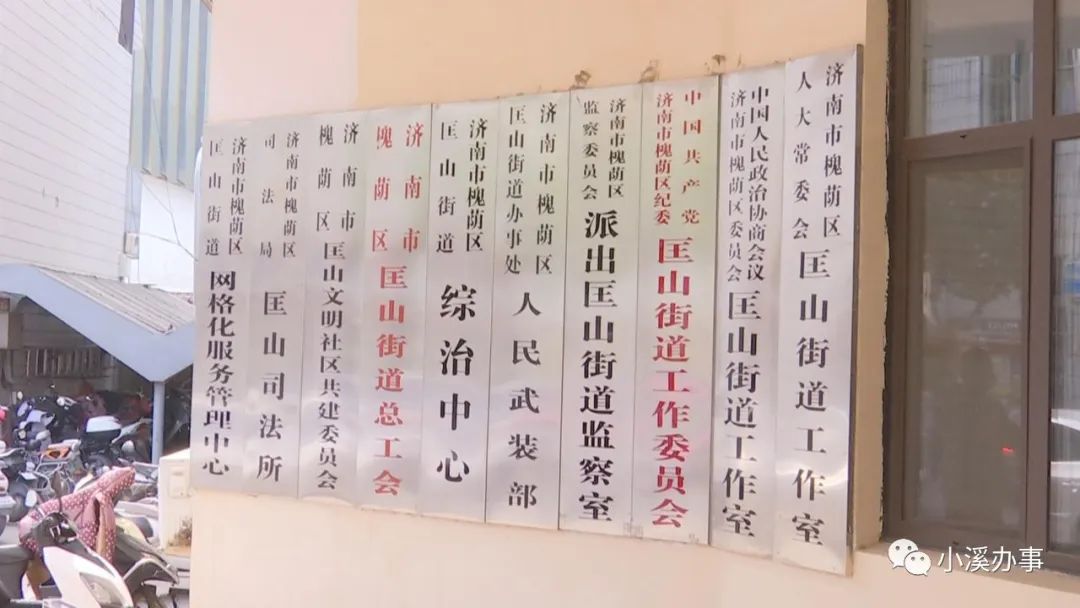 济南市槐荫区
人大常委会
匡山街道工作室
中国人民政治协商会议
济南市槐荫区委员会
匡山街道工作室
中国共产党
济南市槐荫区纪委
匡山街道工作委员会
济南市槐荫区
监察委员会
派出匡山街道监察室
济南市槐荫区
匡山街道办事处
人民武装部
济南市槐荫区
匡山街道
综治中心
济南市
槐荫区
匡山街道总工会
济南市
槐荫区
匡山文明社区共建委员会
济南市槐荫区
司法局
匡山司法所
济南市槐荫区
匡山街道
网格化服务管理中心
小溪办事